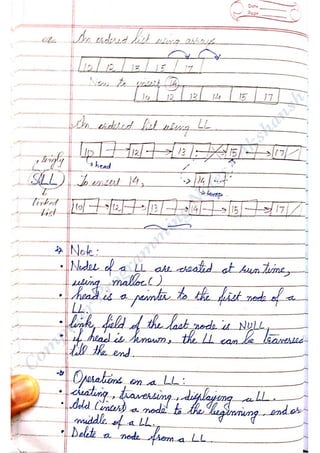 Date
Page
eg. An ordered list using arrays
10 12 13 15 17
Now to insert 14
10 12 13 14 15 17
An ordered list using LL
10 12 13 15 17
head
singly
SLL To insert 14, 14
temp
linked
list
10 12 13 14 15 17
Note:
• Nodes of a LL are created at run time,
using malloc()
• head is a pointer to the first node of a
LL.
• link field of the last node is NULL
• if head is known, the LL can be traversed
till the end.
Operations on a LL:
• creating, traversing, displaying a LL.
• Add (insert) a node to the beginning, end or
middle of a LL.
• Delete a node from a LL.